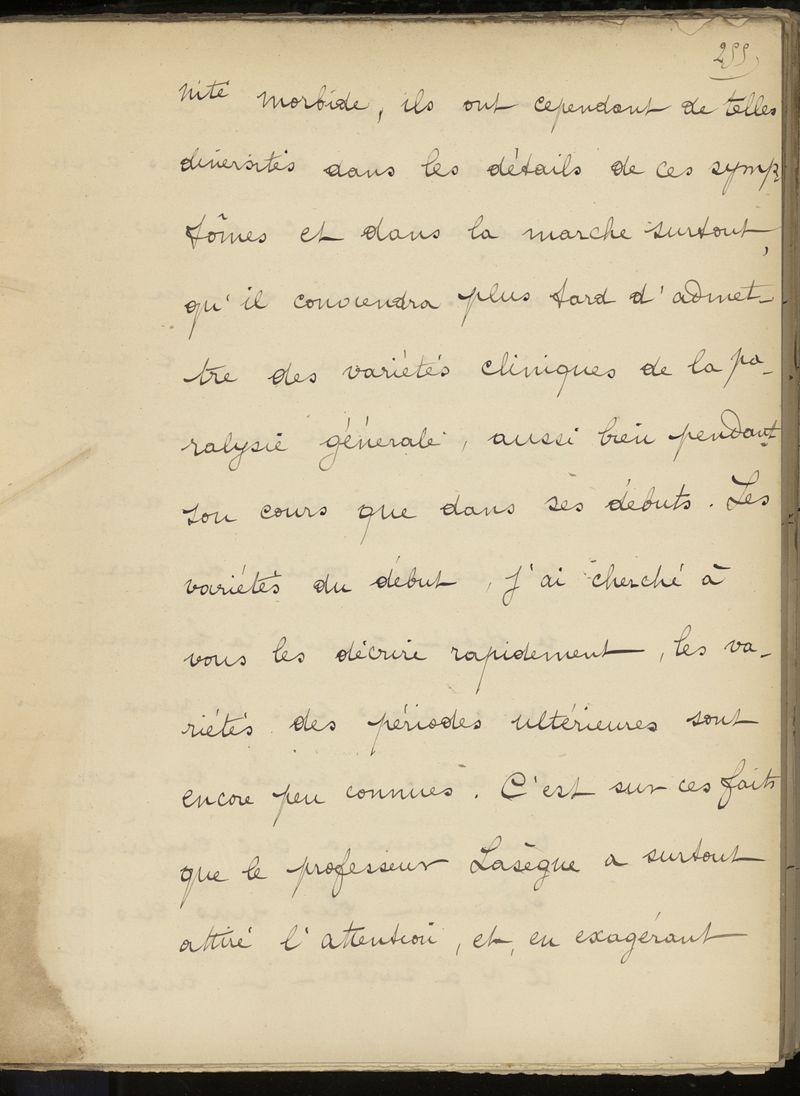 255
nité morbide, ils ont cependant de telles
diversités dans les détails de ces symp-
tômes et dans la marche surtout,
qu'il conviendra plus tard d'admet-
tre des variétés cliniques de la pa-
ralysie générale, aussi bien pendant
son cours que dans ses débuts. Les
variétés du début, j'ai cherché à
vous les décrire rapidement, les va-
riétés des périodes ultérieures sont
encore peu connues. C'est sur ces faits
que le professeur Lasègue a surtout
attiré l'attention, et, en exagérant